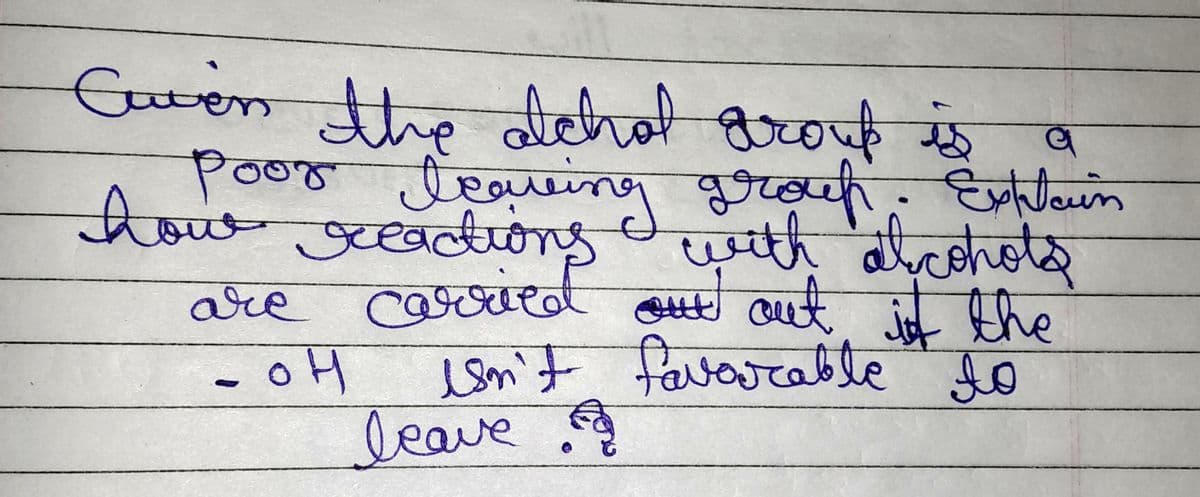 Given the alchol group is a
poor leaving group. Explain
how reactions with alcohols
are carried out out if the
- OH isn't favourable to
leave ?